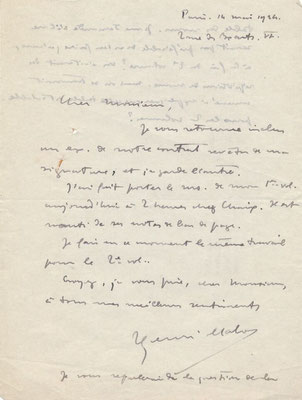 Paris. 16 mai 1936.
Cher Monsieur,
Je vous retourne inclus
un ex. de notre contrat revêtu de ma
signature, et je garde l'autre.
J'ai fait porter le ms. de mon 1er vol.
aujourd'hui à 2 heures chez Chaix. Il est
muni de ses notes de bas de page.
Je fais en ce moment le même travail
pour le 2e vol.
Croyez, je vous prie, cher Monsieur,
à tous mes meilleurs sentiments
Henri
Je vous reparlerai de la question de la